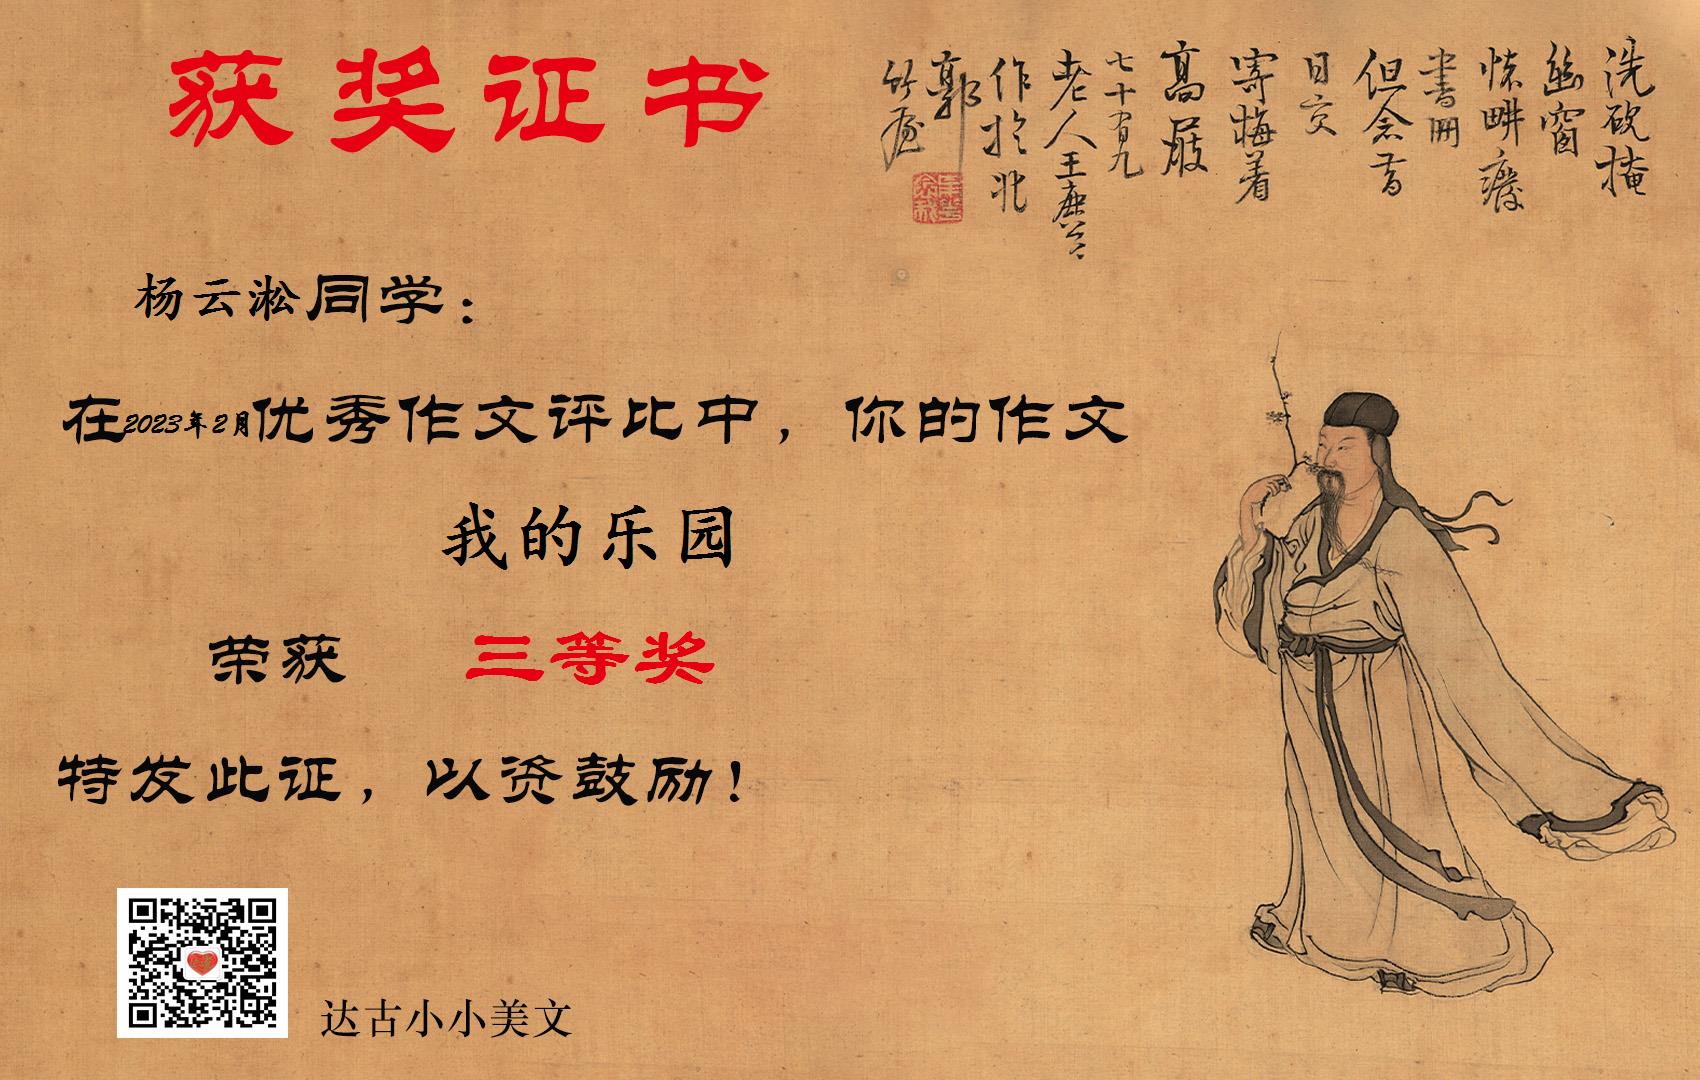 获奖证书
洗砚掩
幽窗
怀畊废
書冊
但念昔
日交
寄梅着
高展
七十有九
老人王
作於北
郭
竹屋
杨云淞同学：
在2023年2月优秀作文评比中，你的作文
我的乐园
荣获 三等奖
特发此证，以资鼓励！
达古小小美文